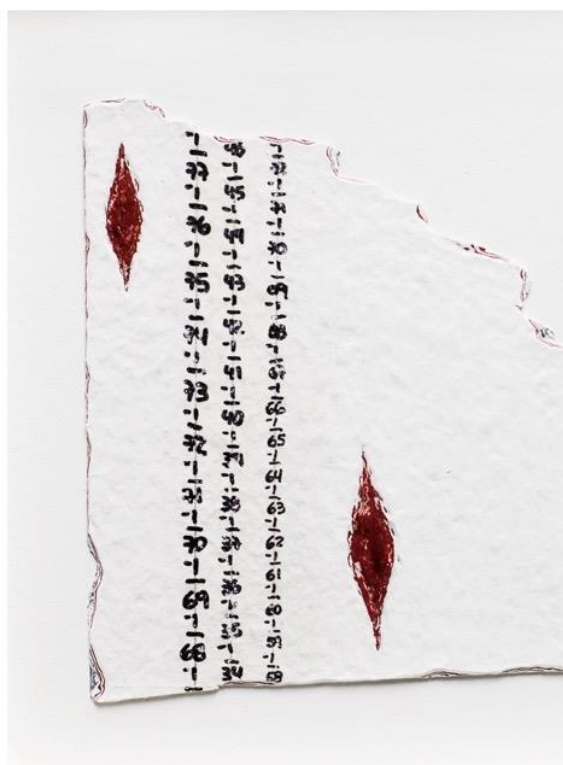 -1
77
-1
76
-1
75
-1
74
-1
73
-1
72
-1
71
-1
70
-1
69
-1
68
-1
46
-1
45
-1
44
-1
43
-1
42
-1
41
-1
40
-1
39
-1
38
-1
37
-1
36
-1
35
-1
34
-1
72
-1
71
-1
70
-1
69
-1
68
-1
67
-1
66
-1
65
-1
64
-1
63
-1
62
-1
61
-1
60
-1
59
-1
58